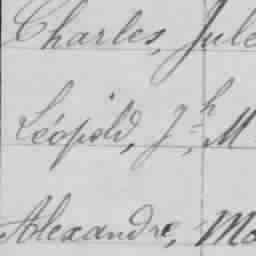 Charles, Jule
Léopold, Jh, M
Alexandre, Ma